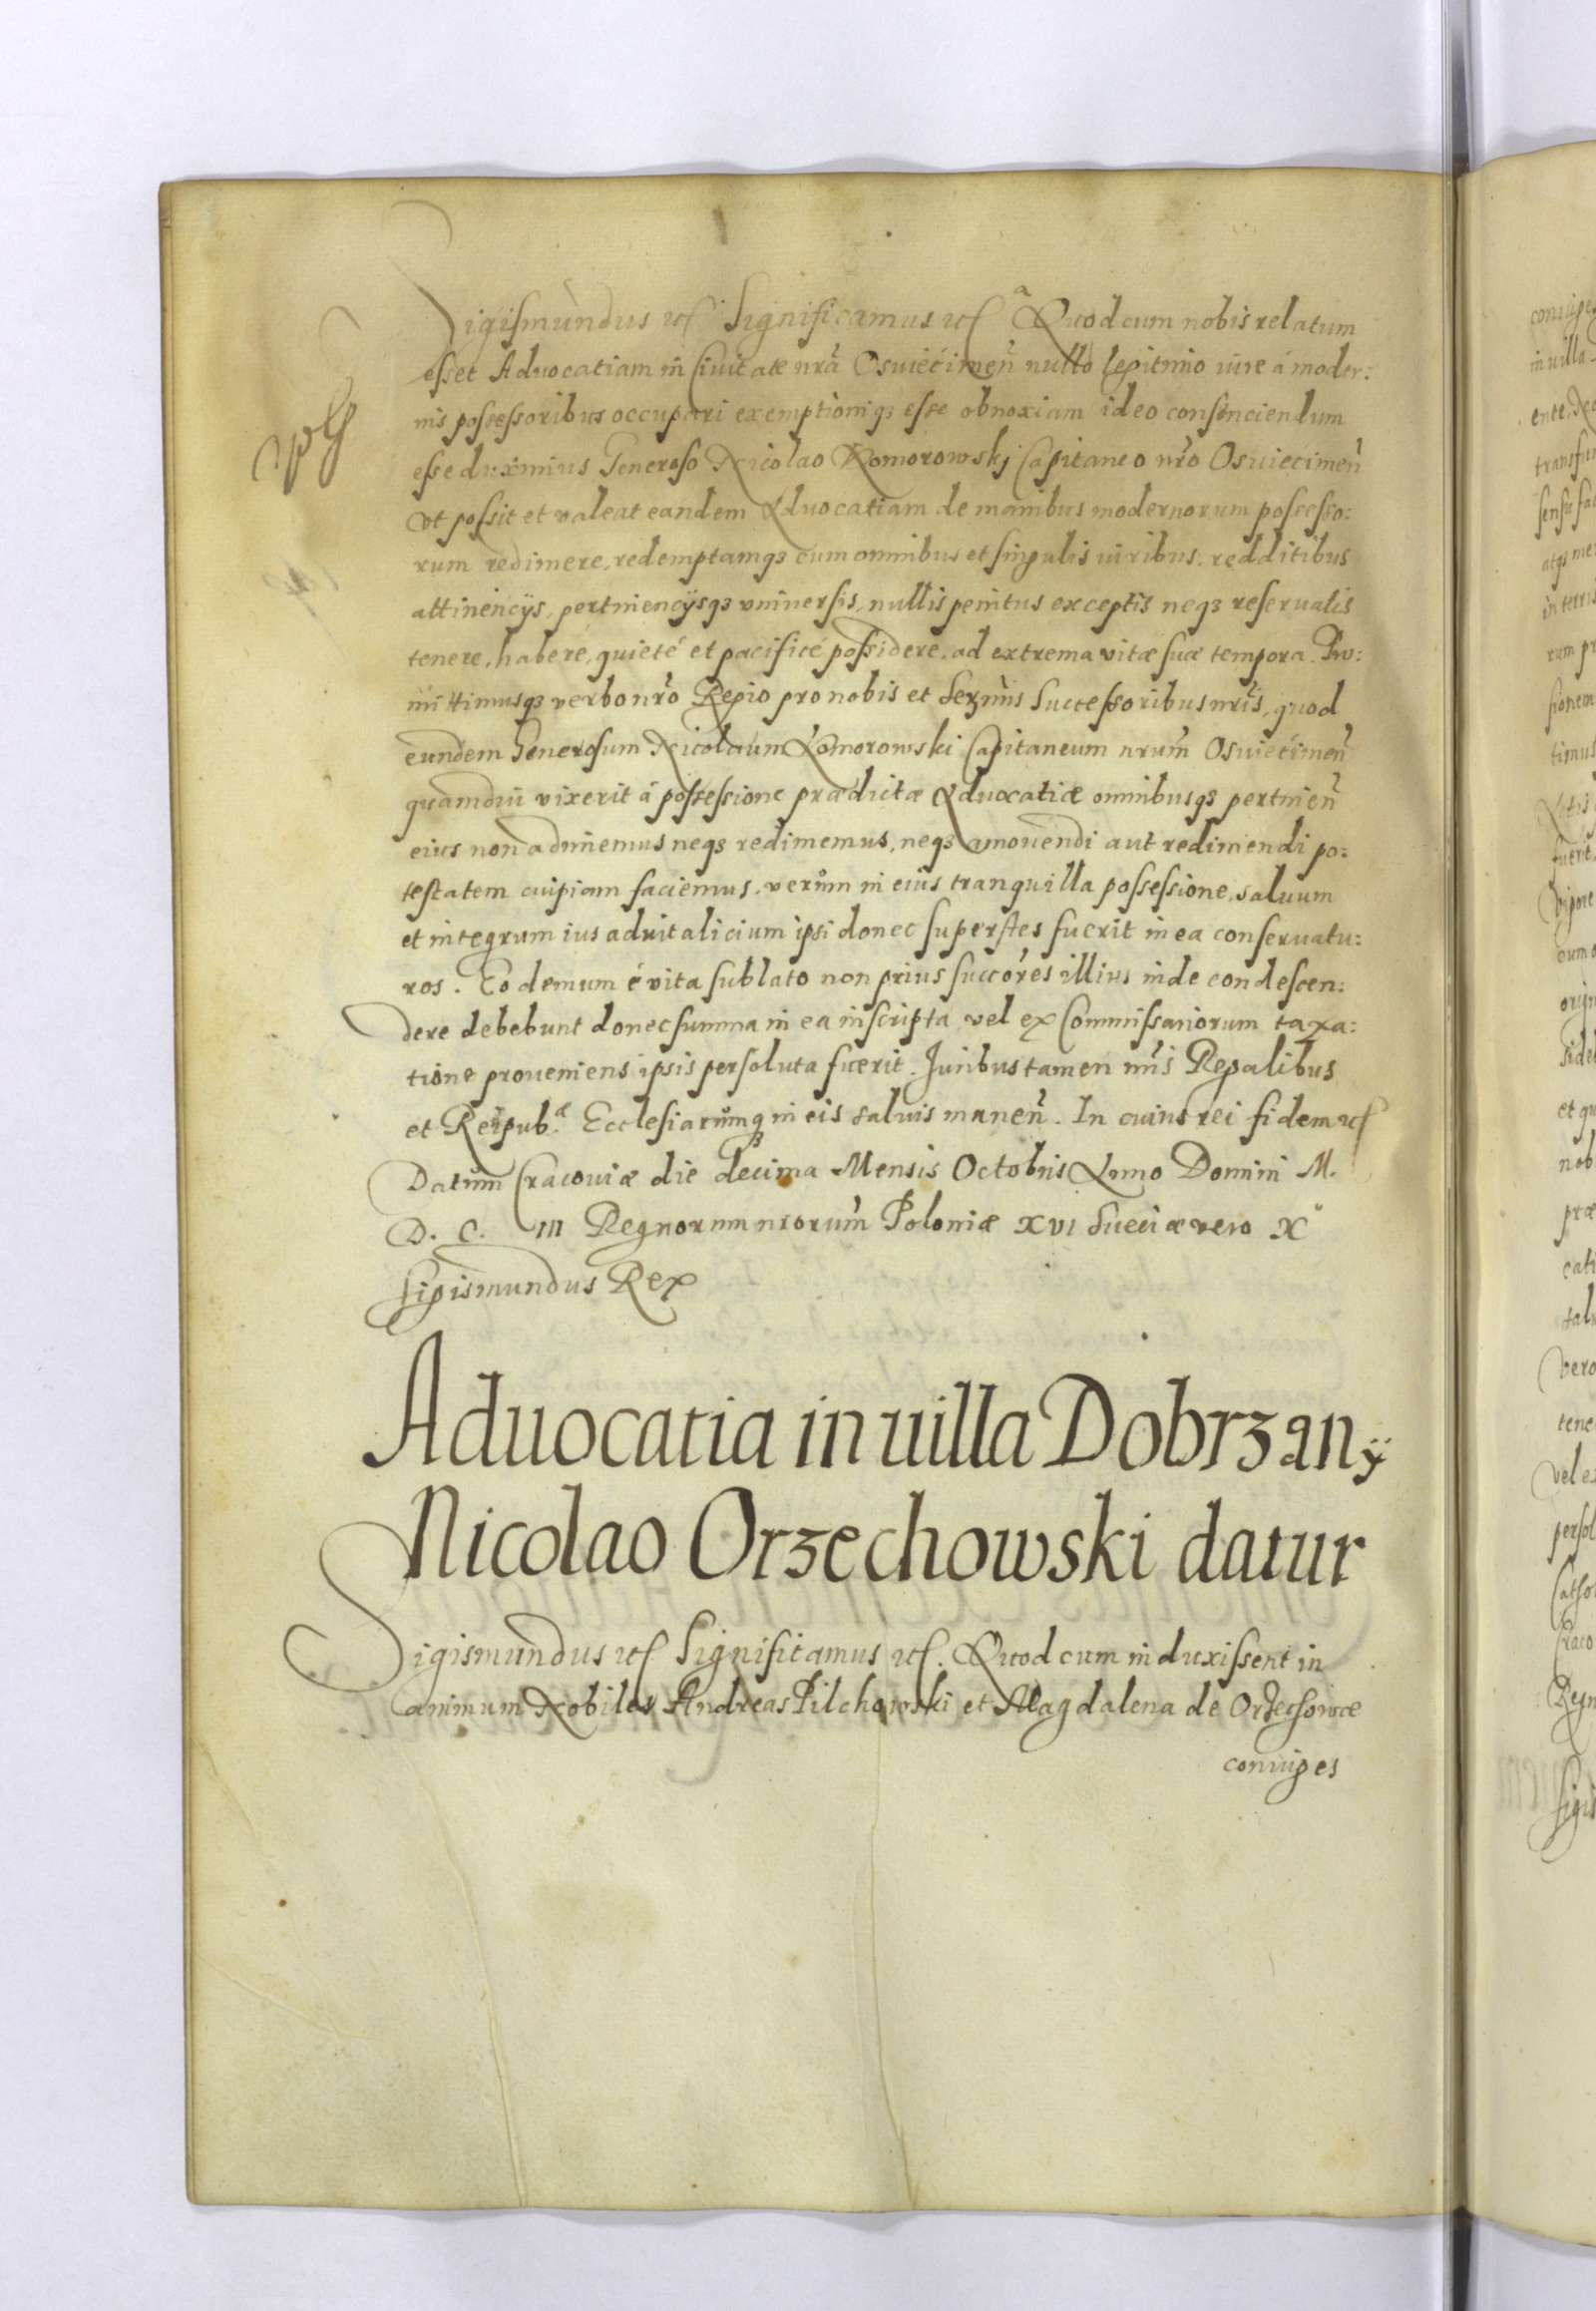 Sigismundus etc Significamus etc Quod cum nobis relatum
esset Aduocatiam in Ciuitate nr̃a Osuiecimeñ nullo legitimo iure á moder:
nis possessoribus occupari exemptioniqȝ esse obnoxiam ideo consenciendum
esse duximus Generoso Nicolao Komorowskj Capitaneo nr̃o Osuiecimeñ
vt possit et valeat eandem Aduocatiam de manibus modernorum possesso:
rum redimere, redemptamqȝ cum omnibus et singulis iuribus, redditibus
attinencÿs, pertinencÿsqȝ vniuersis, nullis penitus exceptis neqȝ reseruatis
tenere, habere, quieté et pacificé possidere, ad extrema vitæ suæ tempora. Pro:
mittimusqȝ verbo nr̃o Regio pro nobis et Serm̃is Successoribus nr̃is, quod
eundem Generosum Nicolaum Komorowski Capitaneum nrum̃ Osuiecimeñ
quamdiu vixerit á possessione prædictæ Aduocatiæ omnibusqȝ pertineñ
eius non adimemus neqȝ redimemus, neqȝ amouendi aut redimendi po:
testatem cuipiam faciemus, verùm in eius tranquilla possessione, saluum
et integrum ius aduitalicium ipsi donec superstes fuerit in ea conseruatu:
ros. Eo demum é vita sublato non prius succõres illius inde condescen:
dere debebunt donec summa in ea inscripta vel ex Commissariorum taxa:
tione proueniens ipsis persoluta fuerit. Juribus tamen nr̃is Regalibus
et Reipub.æ Ecclesiarumqȝ in eis saluis maneñ. In cuius rei fidem etc
Datum Cracouiæ die decima Mensis Octobris Anno Domini M.
D. C. III Regnorum nrorum̃ Poloniæ XVI Sueciæ vero X°
Sigismundus Rex
Aduocatia in uilla Dobrzanÿ
Nicolao Orzechowski datur
Sigismundus etc Significamus etc. Quod cum induxissent in
animum Nobiles Andreas Pilchowski et Magdalena de
coniuges